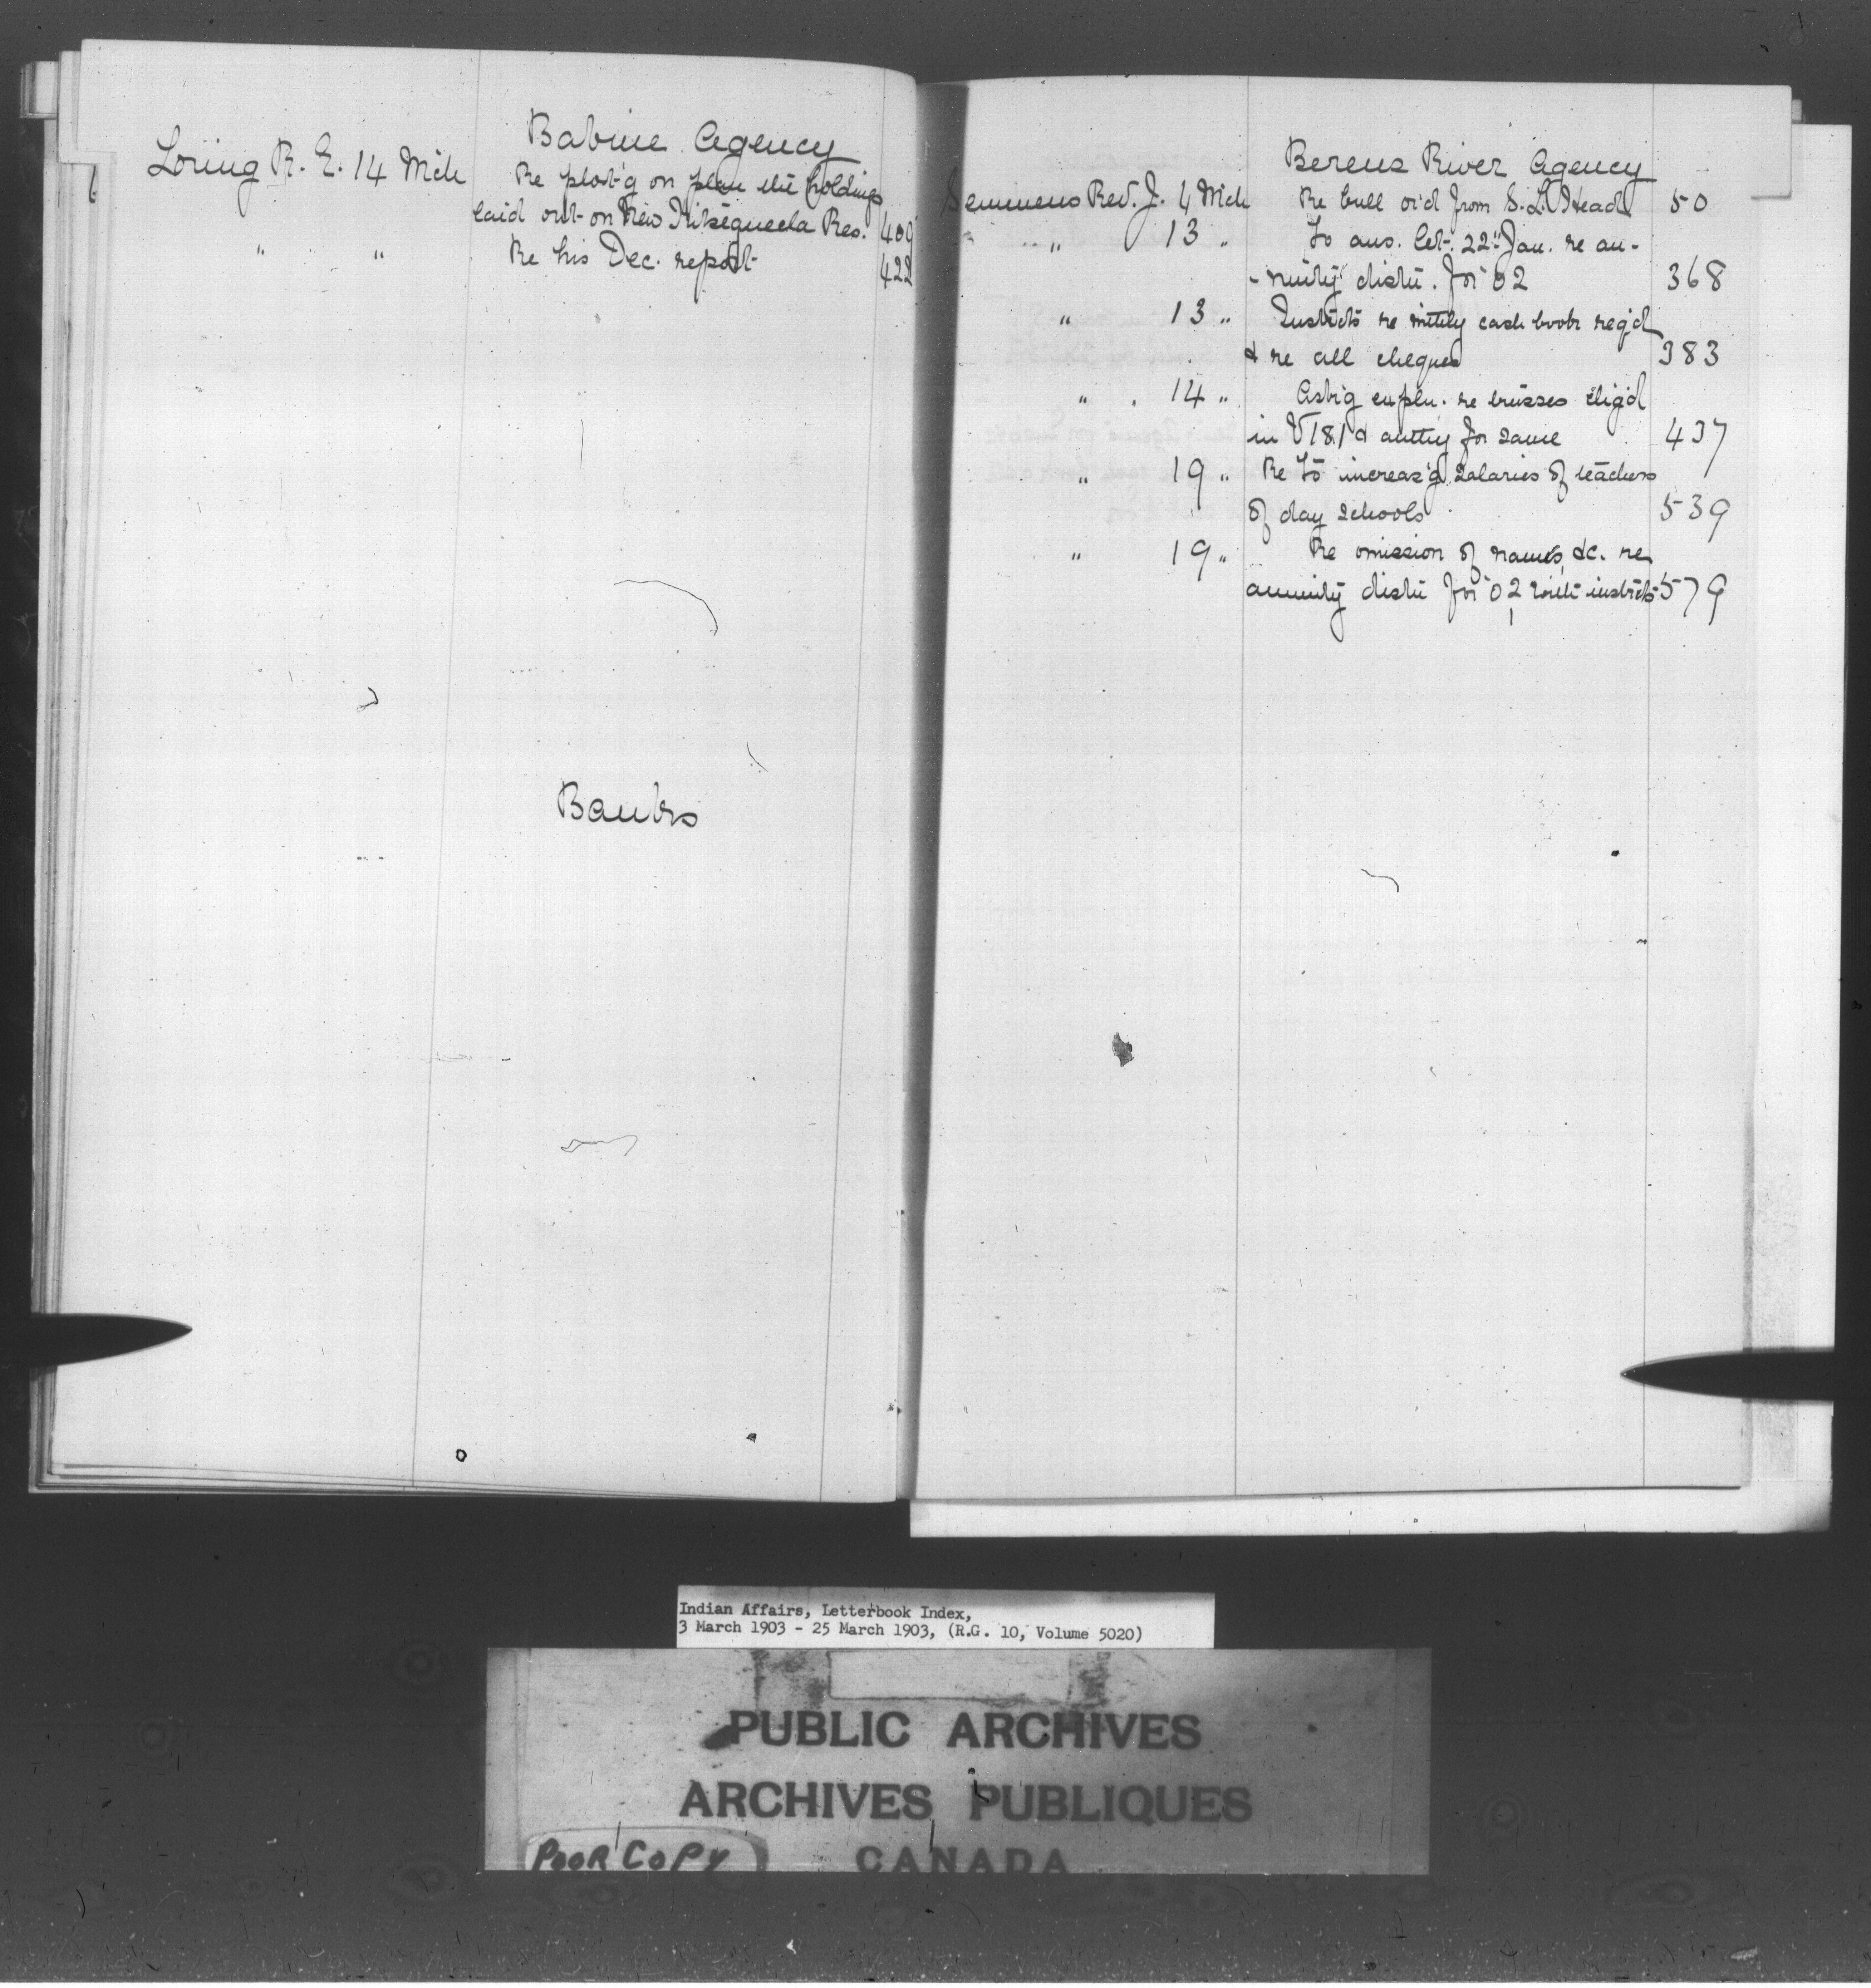 Babine Agency
Loring R. E. 14 Mch Re plott'g on plan the holdings
laid out on New Kitseguecla Res. 409
" " Re his Dec. report 422
Banks
Berens River Agency
Semmens Rev. J. 4 Mch Re bull or'd from S. L. Head 50
" 13 " To ans. let. 22" Jan. re an-
-nuity distn. for 02 368
" 13 " Instrcts re mthly cash book req'd
& re all cheques 383
" 14 " Ask'g expln. re trusses chg'd
in V 181 & authy for same 437
" 19 " Re to increas'g salaries of teachers
of day schools 539
" 19 " Re omission of names, &c. re
annuity distn for 02 with instrcts 579
Indian Affairs, Letterbook Index,
3 March 1903 - 25 March 1903, (R.G. 10, Volume 5020)
PUBLIC ARCHIVES
ARCHIVES PUBLIQUES
POOR COPY CANADA